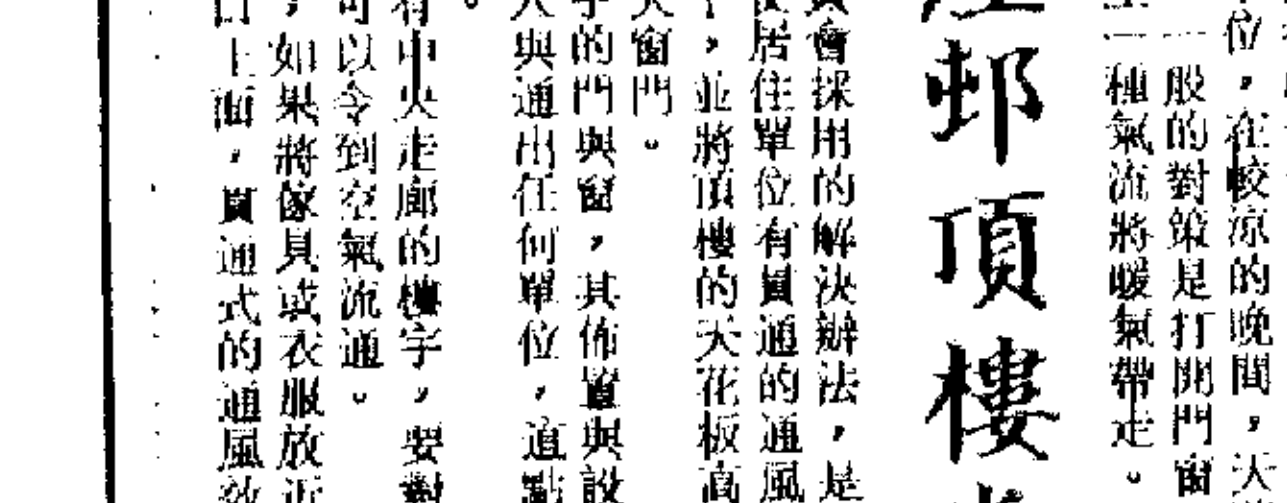 位，在較涼的晚間，天
一般的對策是打開門窗
一種氣流將暖氣帶走。
邨頂樓
會採用的解決辦法，是
居住單位有貫通的通風
，並將頂樓的天花板高
窗門。
的門與窗，其佈置與設
與通出任何單位，這點
有中央走廊的樓宇，要對
可以令到空氣流通。
，如果將傢具或衣服放近
上面，貫通式的通風效